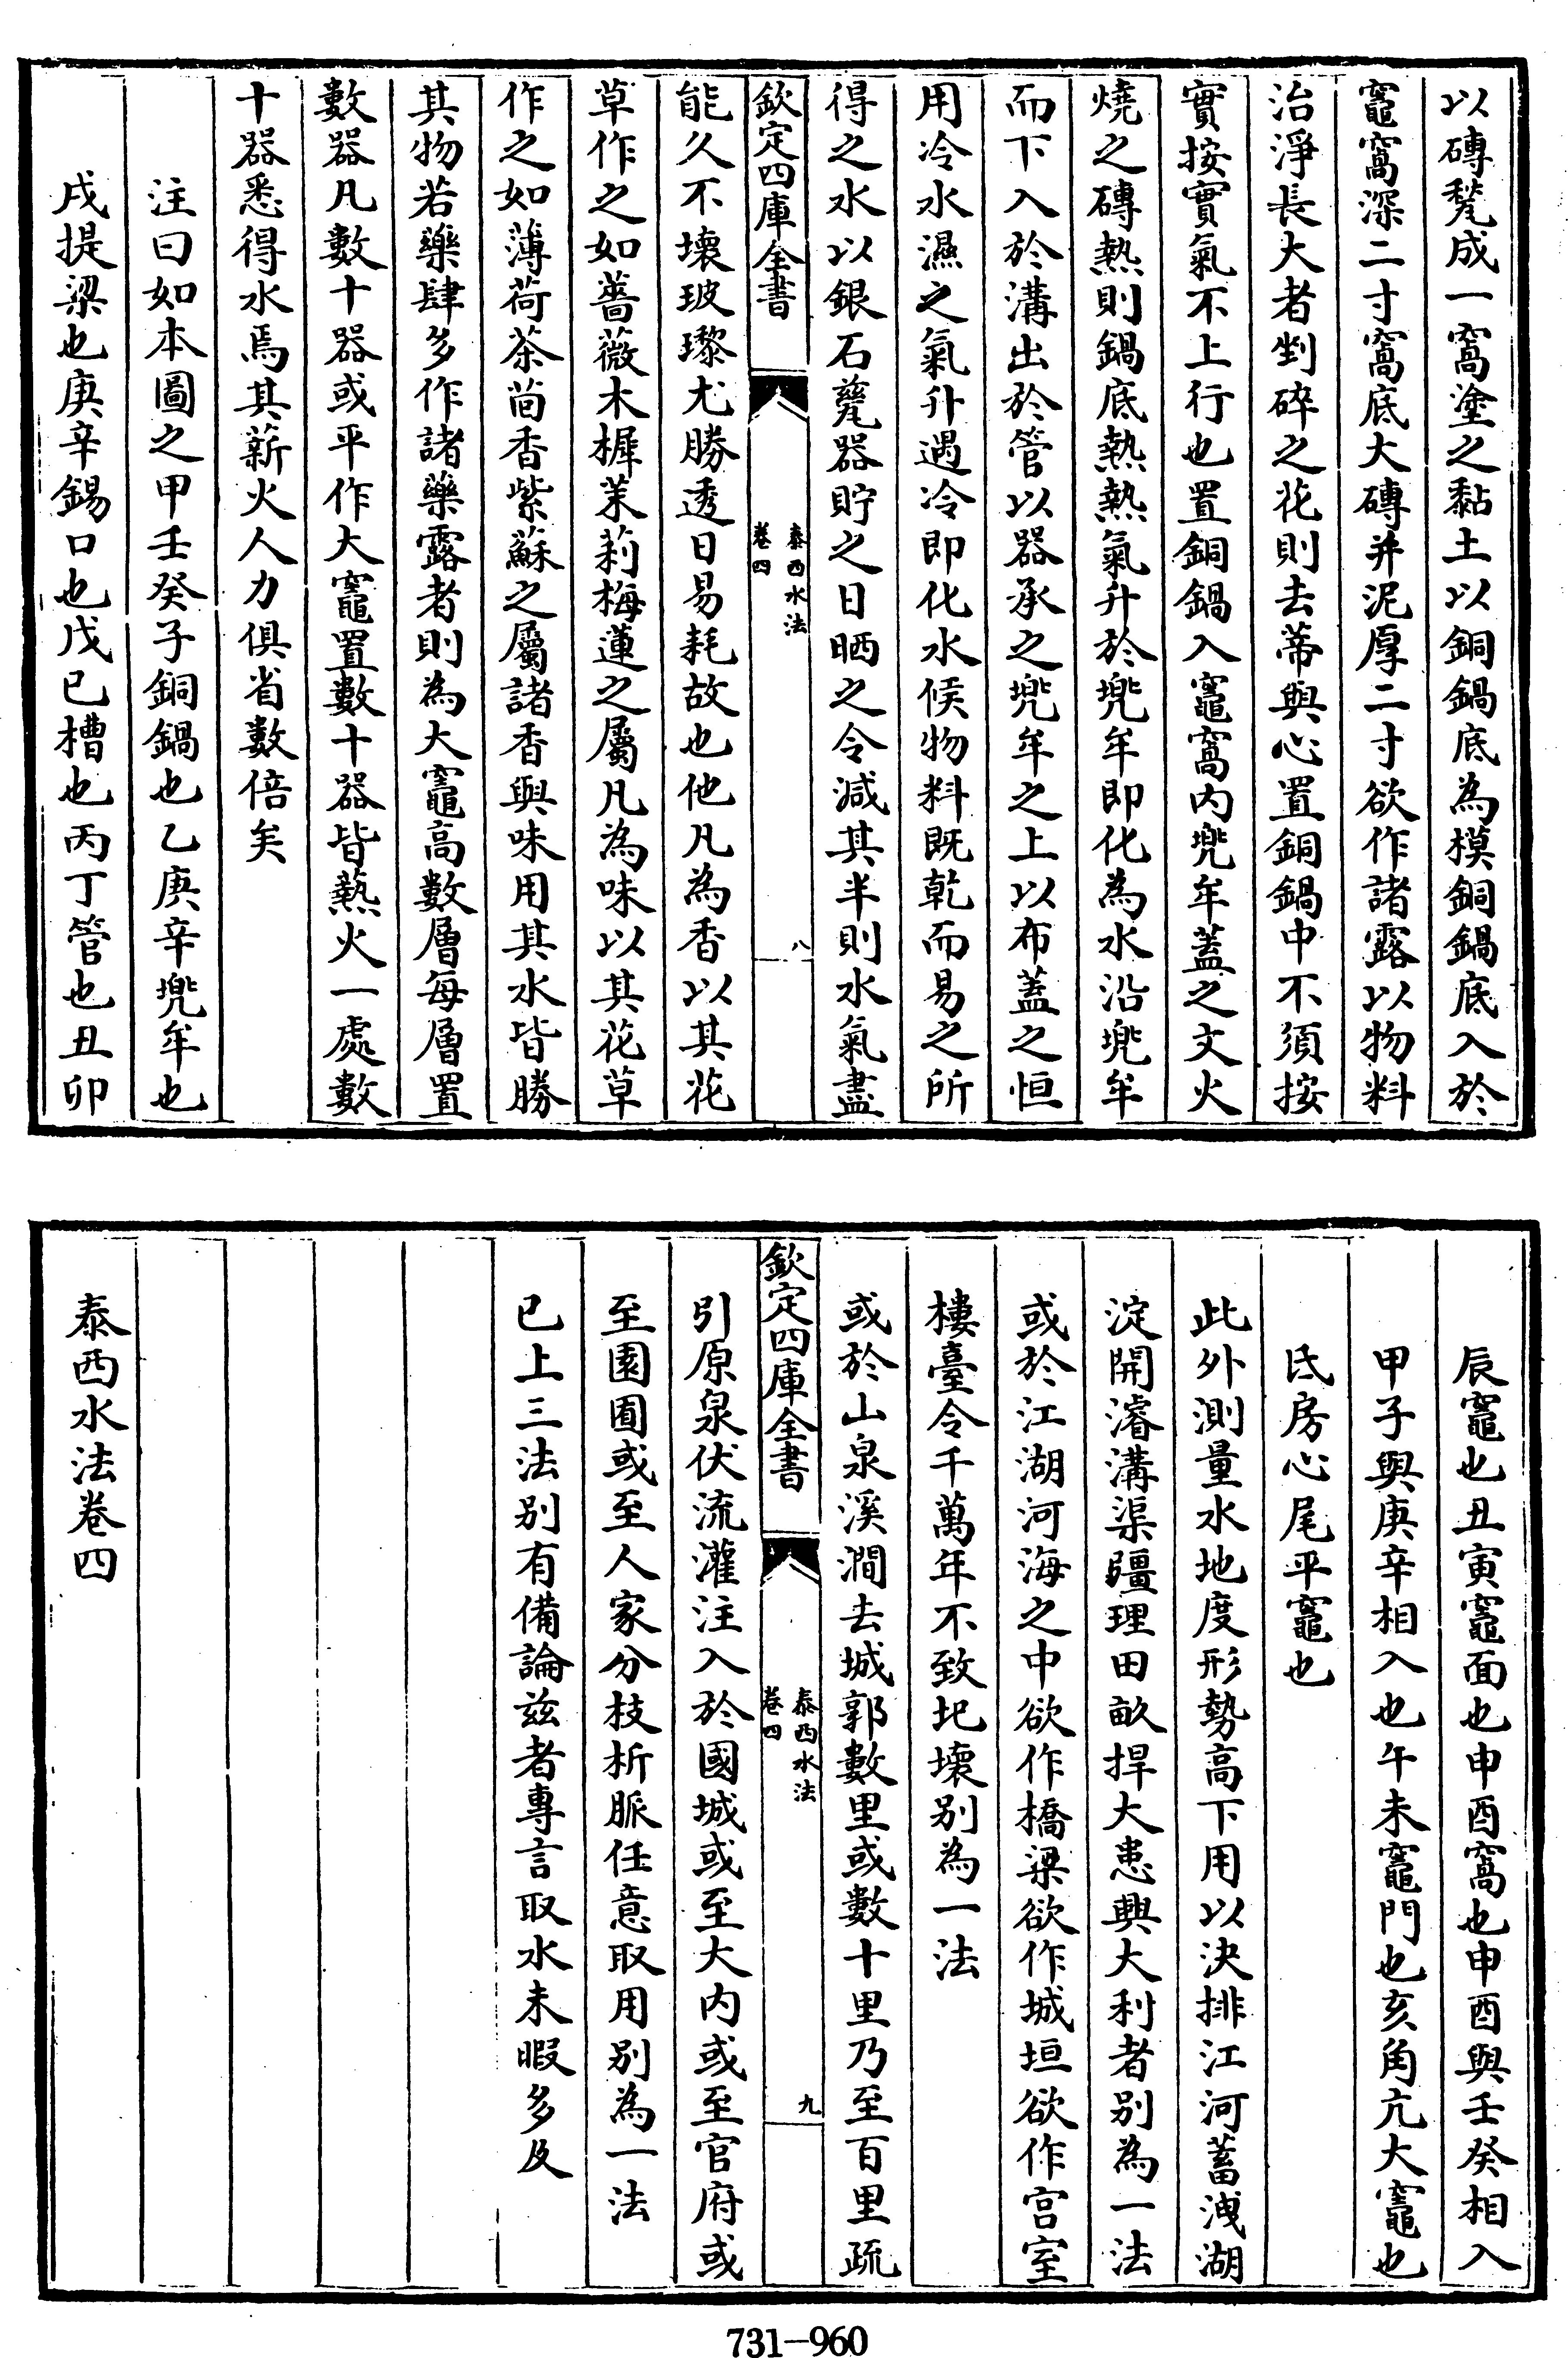 以磚甃成一窩塗之黏土以銅鍋底為模銅鍋底入於
竈窩深二寸窩底大磚并泥厚二寸欲作諸露以物料
治淨長大者剉碎之花則去蒂與心置銅鍋中不須按
實按實氣不上行也置銅鍋入竈窩内兠牟蓋之文火
燒之磚熱則鍋底熱熱氣升於兠牟即化為水沿兠牟
而下入於溝出於管以器承之兠牟之上以布蓋之恒
用冷水濕之氣升遇冷即化水候物料既乾而易之所
得之水以銀石甆器貯之日晒之令減其半則水氣盡
欽定四庫全書
泰西水法
卷四
八
能久不壞玻瓈尤勝透日易耗故也他凡為香以其花
草作之如薔薇木樨茉莉梅蓮之屬凡為味以其花草
作之如薄荷茶茴香紫蘇之屬諸香與味用其水皆勝
其物若藥肆多作諸藥露者則為大竈高數層每層置
數器凡數十器或平作大竈置數十器皆熱火一處數
十器悉得水焉其薪火人力俱省數倍矣
注曰如本圖之甲壬癸子銅鍋也乙庚辛兠牟也
戌提梁也庚辛錫口也戊己槽也丙丁管也丑卯
辰竈也丑寅竈面也申酉窩也申酉與壬癸相入
甲子與庚辛相入也午未竈門也亥角亢大竈也
氐房心尾平竈也
此外測量水地度形勢高下用以決排江河蓄洩湖
淀開濬溝渠疆理田畝捍大患興大利者别為一法
或於江湖河海之中欲作橋梁欲作城垣欲作宫室
樓臺令千萬年不致圮壞别為一法
或於山泉溪澗去城郭數里或數十里乃至百里疏
欽定四庫全書
泰西水法
卷四
九
引原泉伏流灌注入於國城或至大内或至官府或
至園囿或至人家分枝析脈任意取用别為一法
已上三法别有備論兹者專言取水未暇多及
泰西水法卷四
731-960